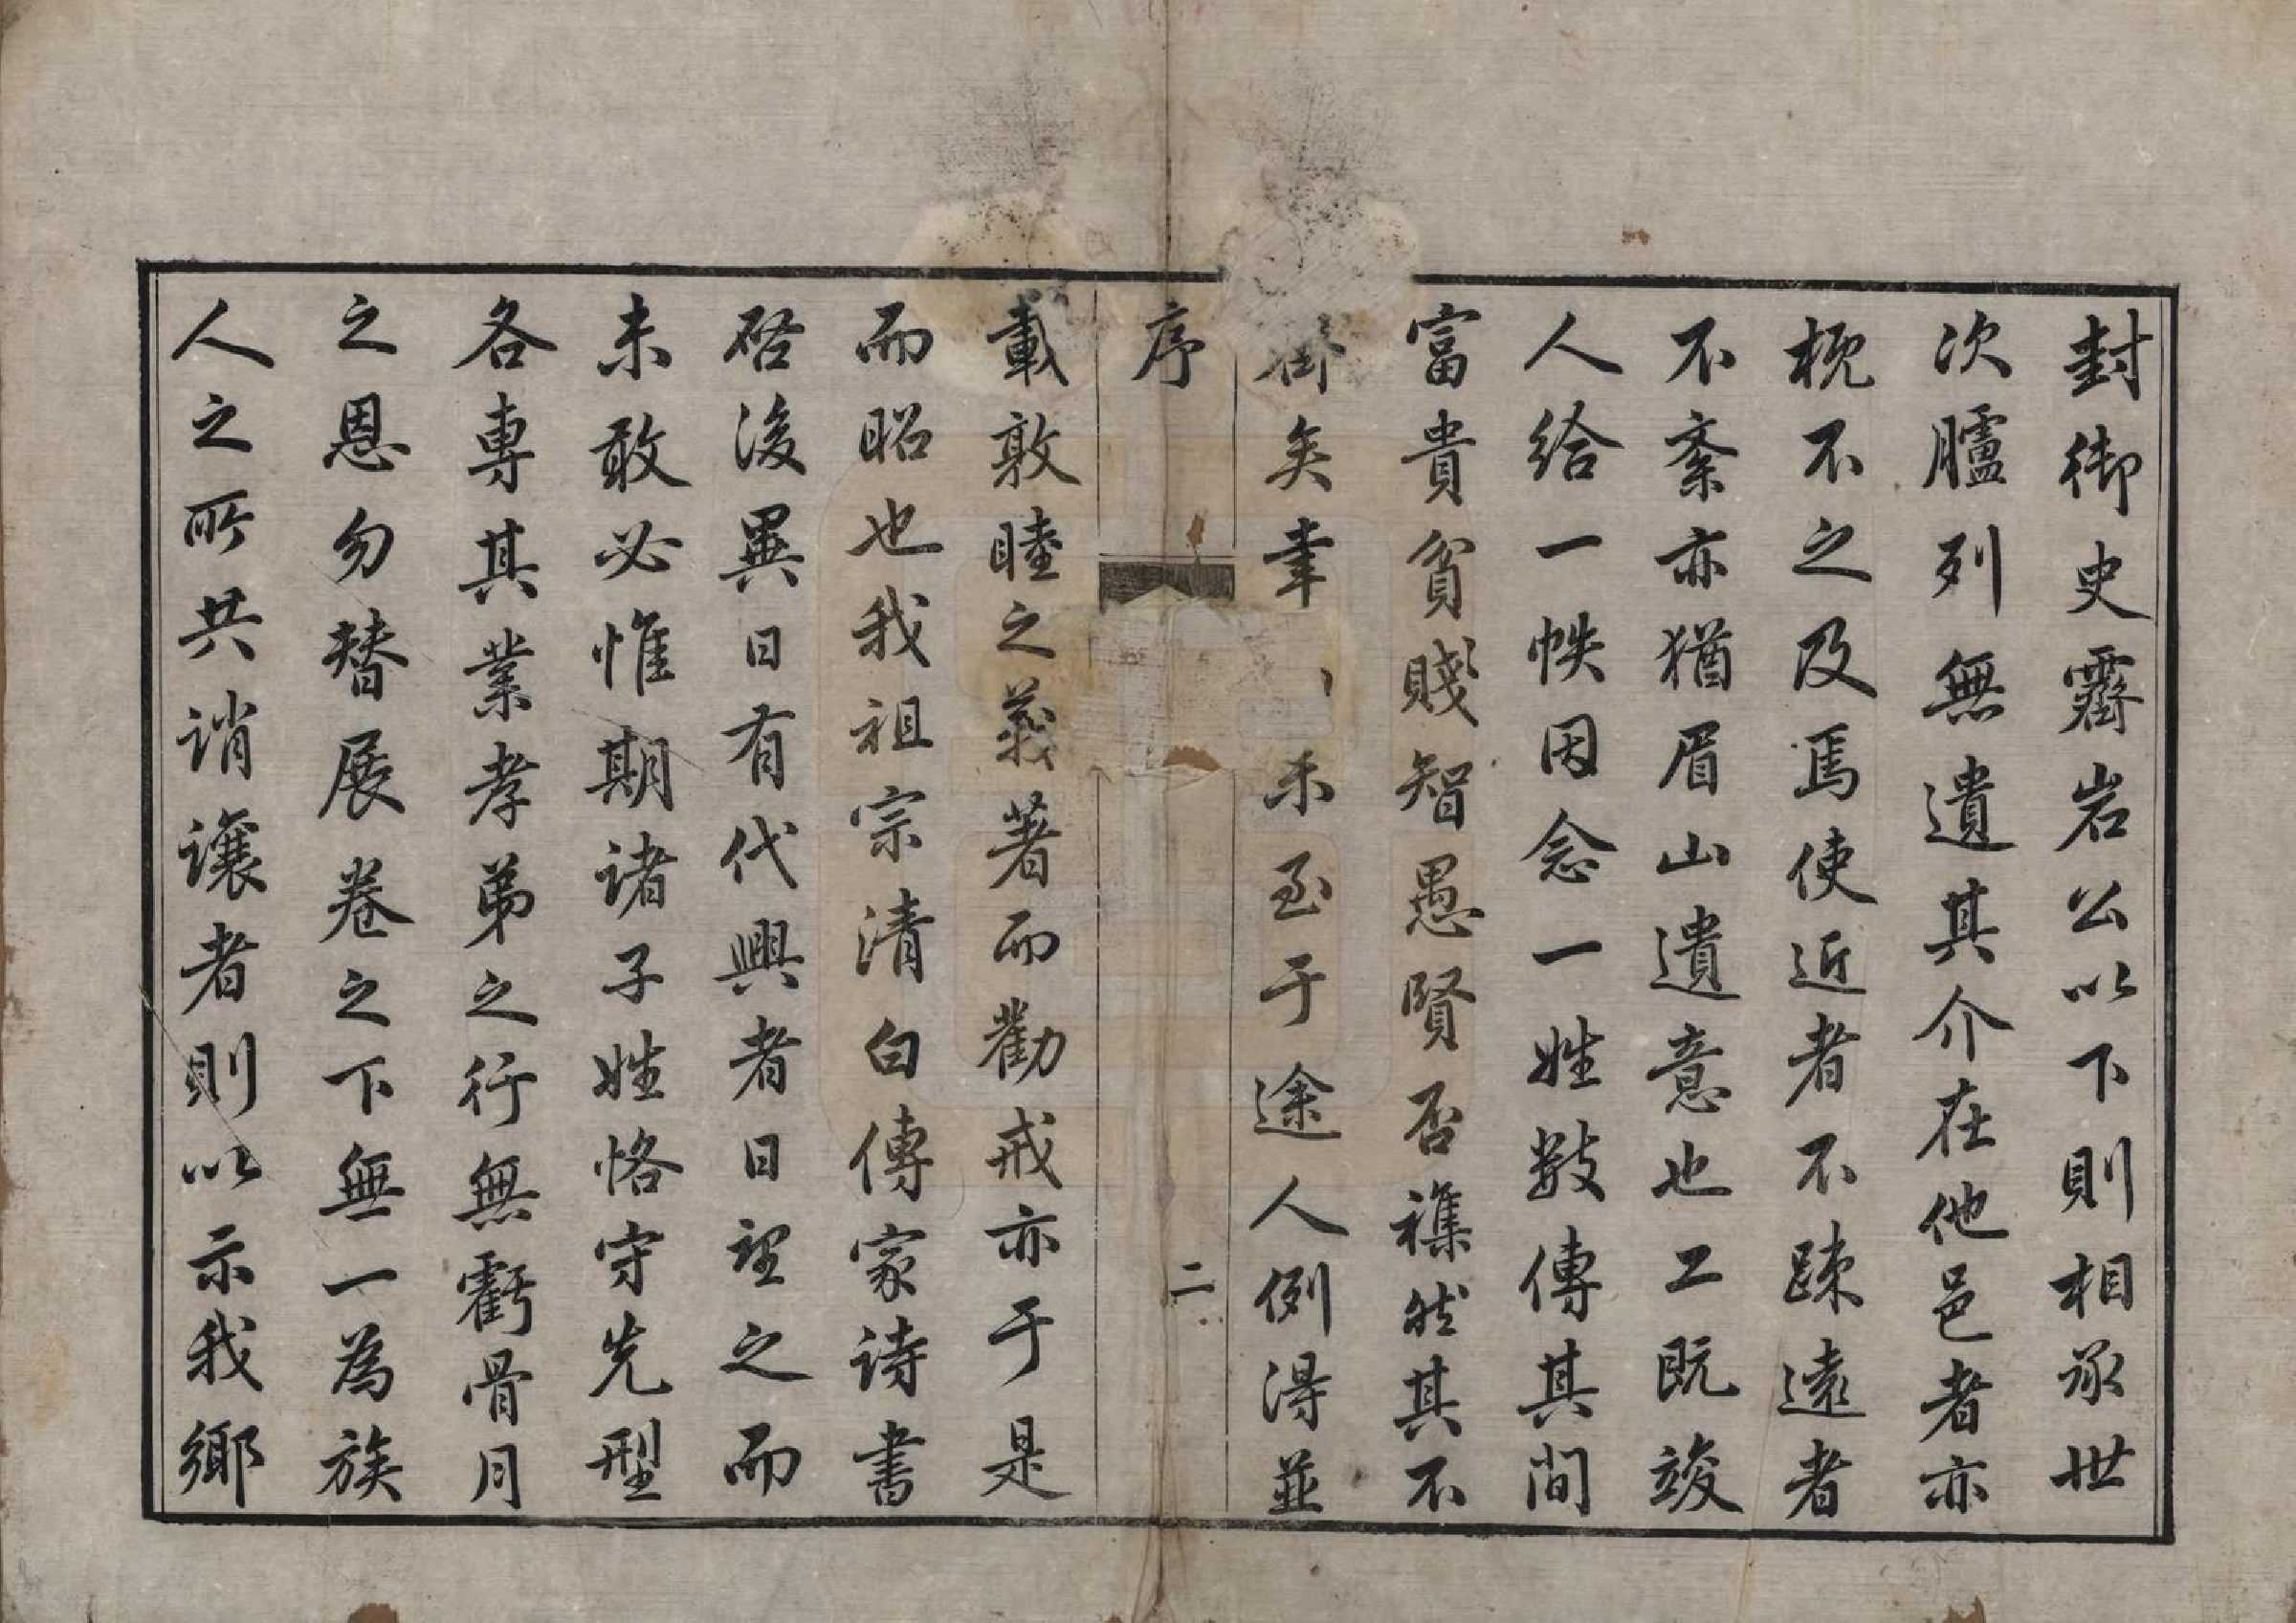 封御史霽岩公以下則相承世
次臚列無遺其介在他邑者亦
概不之及焉使近者不疎遠者
不紊亦猶眉山遺意也工既竣
人給一帙因念一姓数傳其間
富貴貧賤智愚賢否襍然其不
矣幸不至于途人例得並
序
二
載敦睦之義著而勸戒亦于是
而昭也我祖宗清白傳家詩書
啓後異日有代興者日望之而
未敢必惟期諸子姓恪守先型
各專其業孝弟之行無虧骨月
之恩勿替展卷之下無一為族
人之所共誚讓者則以示我鄉